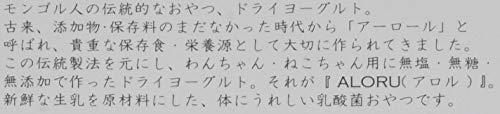 モンゴル人の伝統的なおやつ、ドライヨーグルト。
古来、添加物･保存料のまだなかった時代から「アーロール」と
呼ばれ、貴重な保存食･栄養源として大切に作られてきました。
この伝統製法を元にし、わんちゃん･ねこちゃん用に無塩･無糖･
無添加で作ったドライヨーグルト。それが『 ALORU( アロル ) 』。
新鮮な生乳を原材料にした、体にうれしい乳酸菌おやつです。